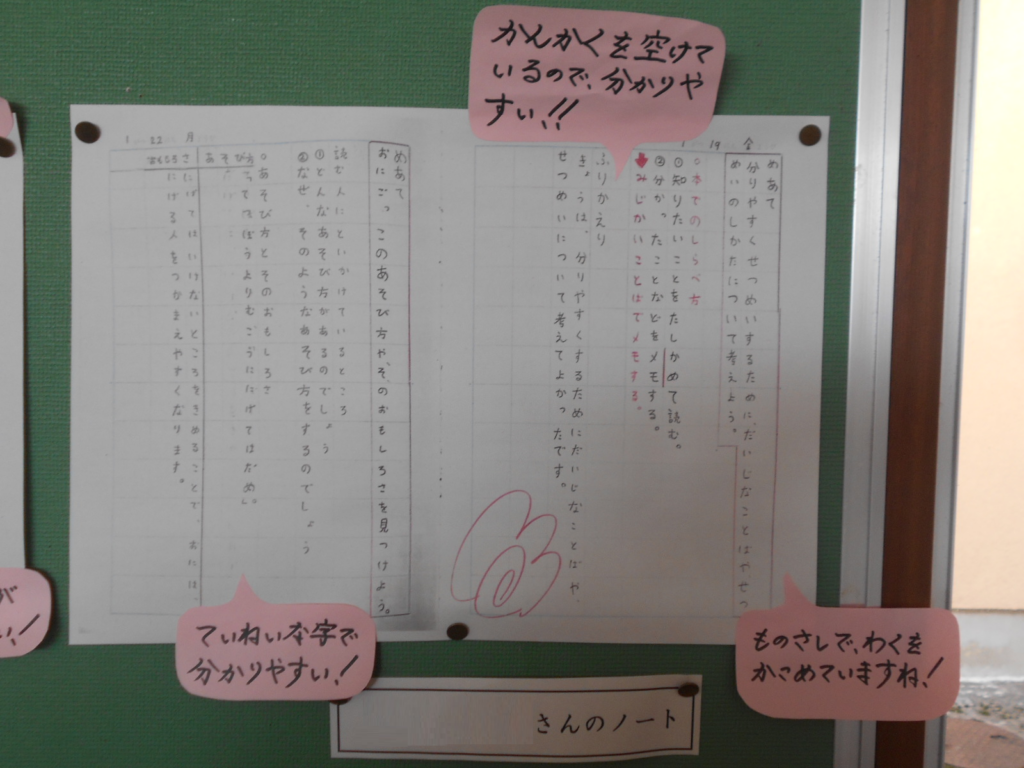 かんかくを空けて
いるので、分かりや
すい!!
1 19 金
めあて
分りやすくせつめいするために、だいじなことばやせつ
めいのしかたについて考えよう。
○本でのしらべ方
①知りたいことをたしかめて読む。
②分かったことなどをメモする。
みじかいことばでメモする。
ふりかえり
きょうは、分りやすくするためにだいじなことばや、
せつめいについて考えてよかったです。
1 22 月
めあて
おにごっこのあそび方や、そのおもしろさを見つけよう。
読む人にといかけているところ
①どんなあそび方があるのでしょう
②なぜ、そのようなあそび方をするのでしょう
○あそび方とそのおもしろさ
あそび方
おもしろさ
にげる人をつかまえやすくなります。
ていねいな字で
分かりやすい!
ものさしで、わくを
かこめていますね!
さんのノート
が
い!